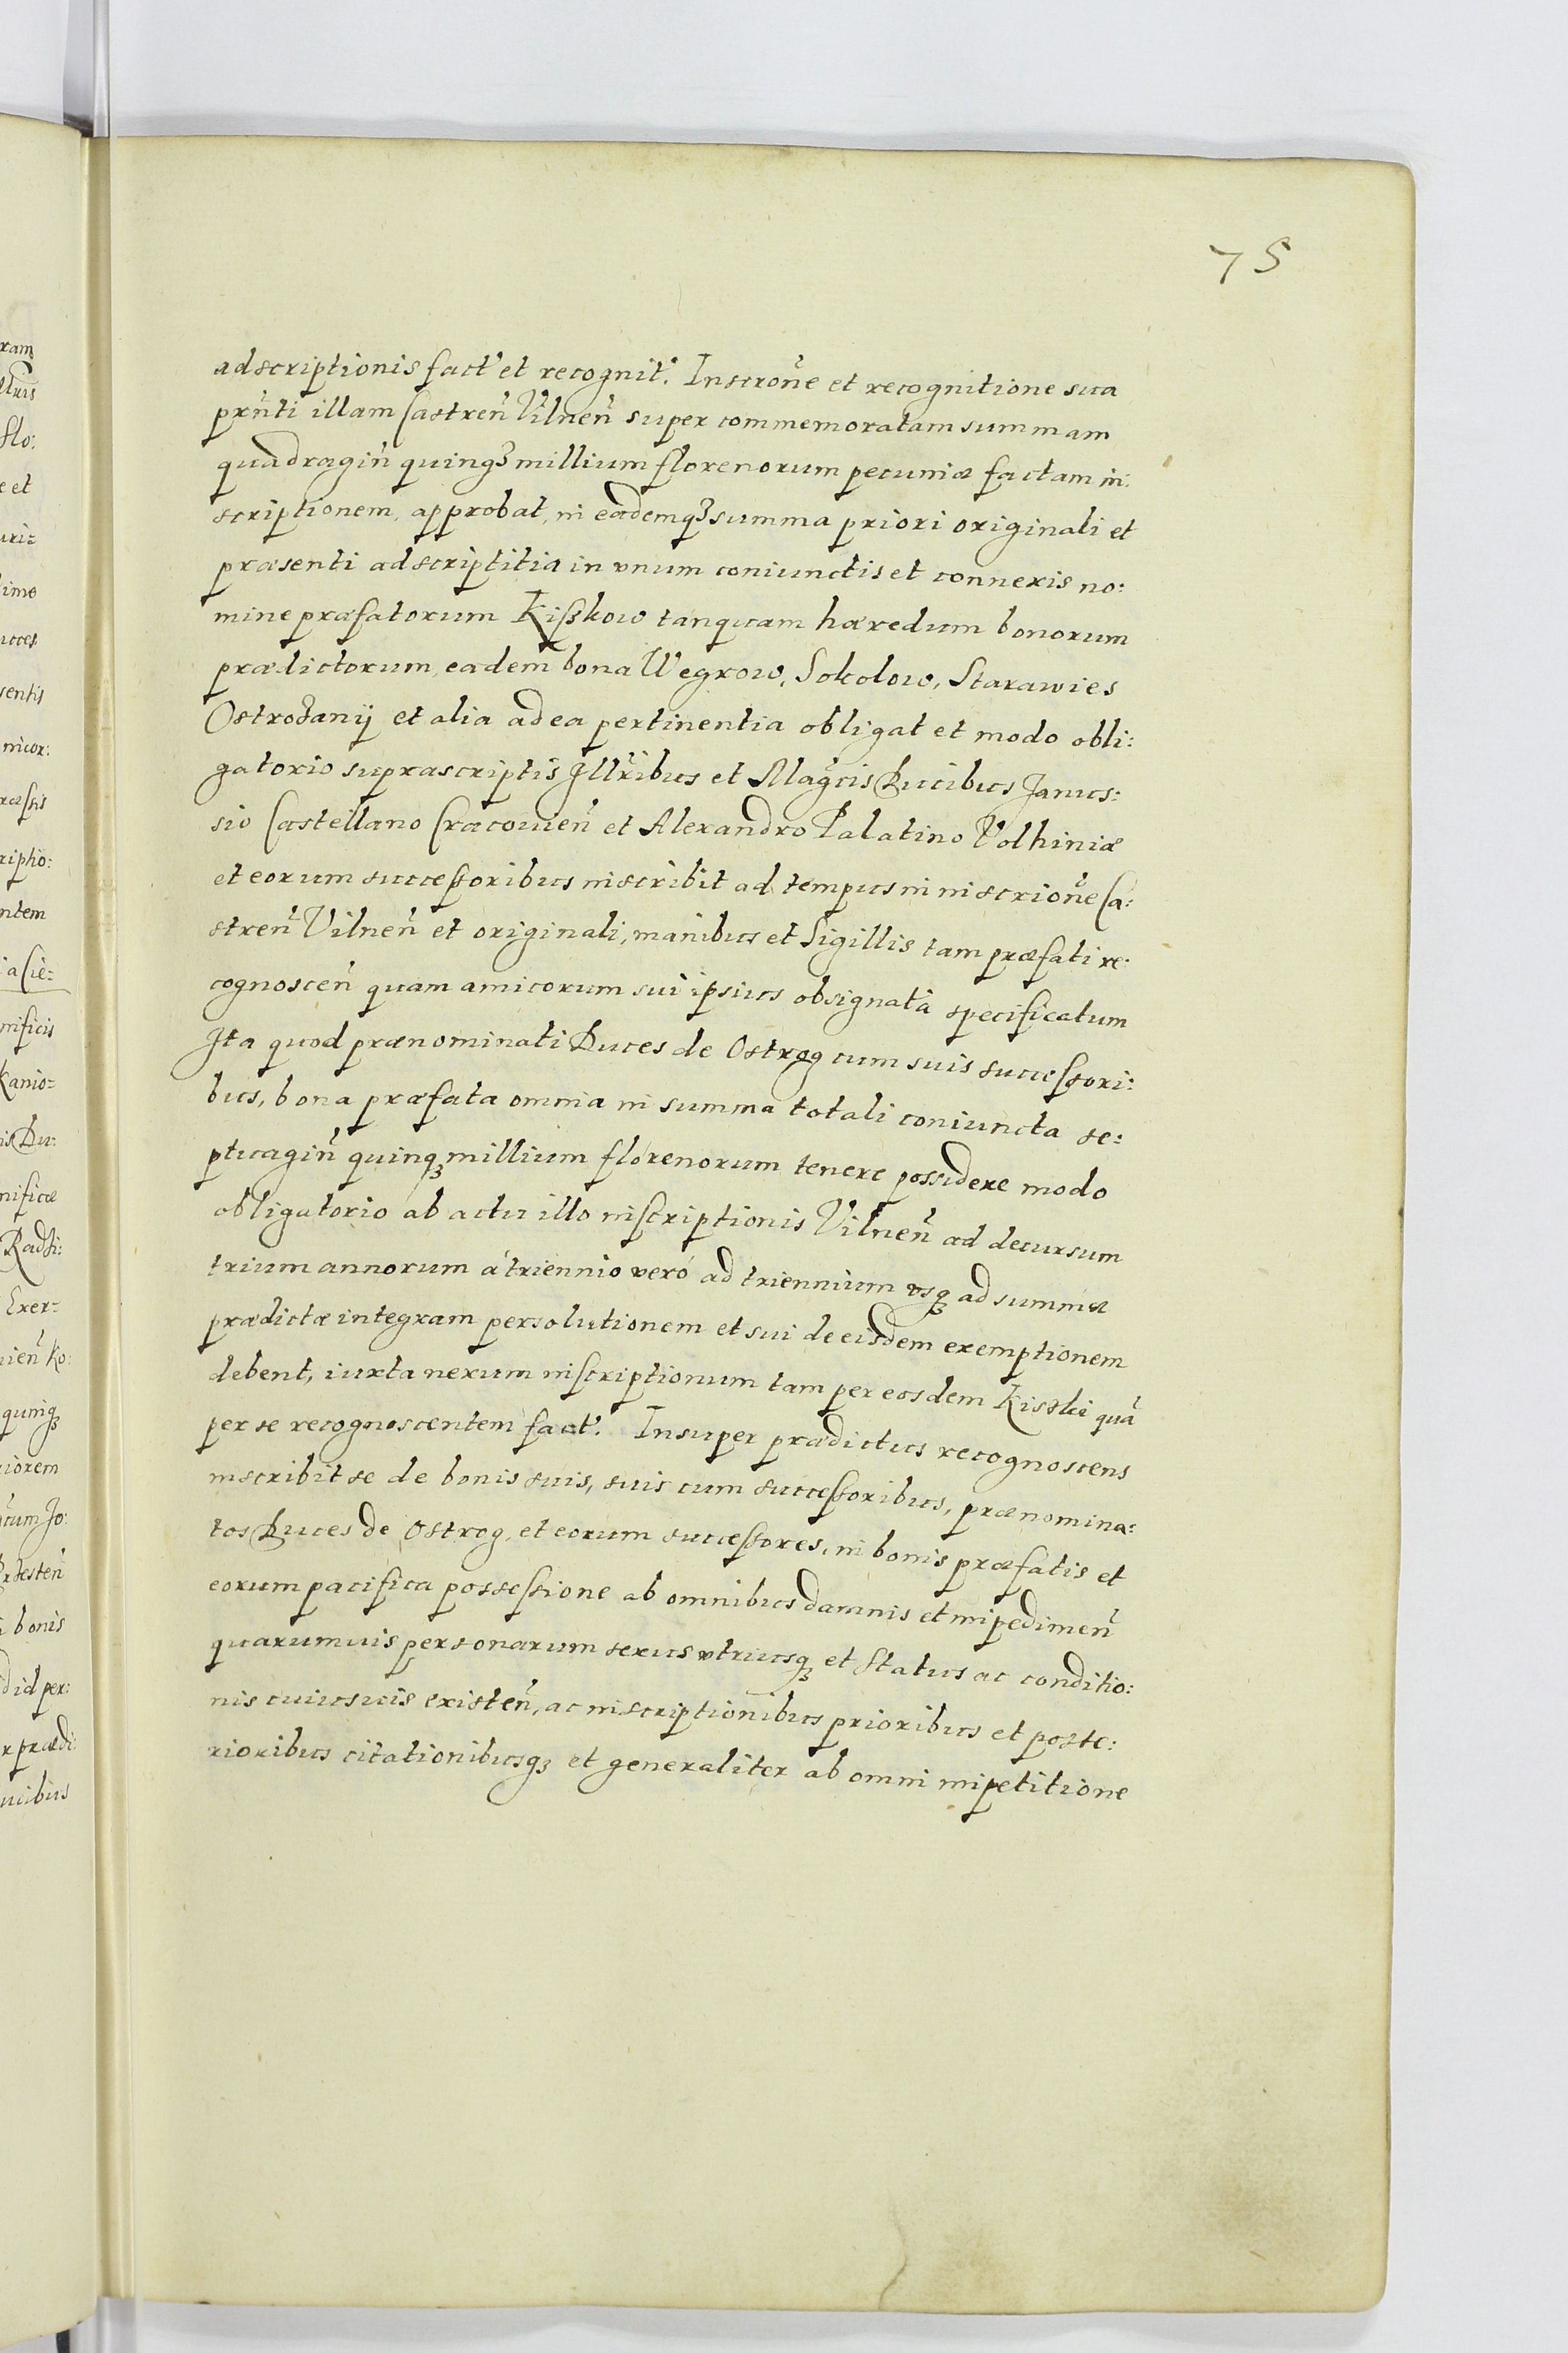 75
adscriptionis fact' et recognit'. Inscrone et recognitione sua
prnti illam Castren Vilnen super commemoratam summam
quadragin quinqꝫ millium florenorum pecuniæ factam in:
scriptionem, approbat, in eademqꝫ summa priori originali et
præsenti adscriptitia in vnum coniunctis et connexis no:
mine præfatorum Kißkow tanquam hæredum bonorum
prædictorum, eadem bona Wegrow, Sokolow, Starawies
Ostrożanÿ et alia ad ea pertinentia obligat et modo obli:
gatorio suprascriptis Illribus et Magcis Ducibus Janus:
sio Castellano Cracouien et Alexandro Palatino Volhiniæ
et eorum succeßoribus inscribit ad tempus in inscrione Ca:
stren Vilnen et originali, manibus et Sigillis tam præfati re:
cognoscen quam amicorum sui ipsius obsignata specificatum
Ita quod prænominati Duces de Ostrog cum suis succeßori:
bus, bona præfata omnia in summa totali coniuncta se:
ptuagin quinqꝫ millium florenorum tenere possidere modo
obligatorio ab actu illo inscriptionis Vilnen ad decursum
trium annorum á triennio veró ad triennium vsqꝫ ad summæ
prædictæ integram persolutionem et sui de eisdem exemptionem
debent, iuxta nexum inscriptionum tam per eosdem Kisski quá
per se recognoscentem fact'. Insuper prædictus recognoscens
inscribit se de bonis suis, suis cum succeßoribus, prænomina:
tos Duces de Ostrog, et eorum succeßores, in bonis præfatis et
eorum pacifica posseßione ab omnibus damnis et impedimen
quarumuis personarum sexus vtriusqꝫ et Status ac conditio:
nis cuiusuis existen, ac inscriptionibus prioribus et poste:
rioribus citationibusqꝫ et generaliter ab omni impetitione